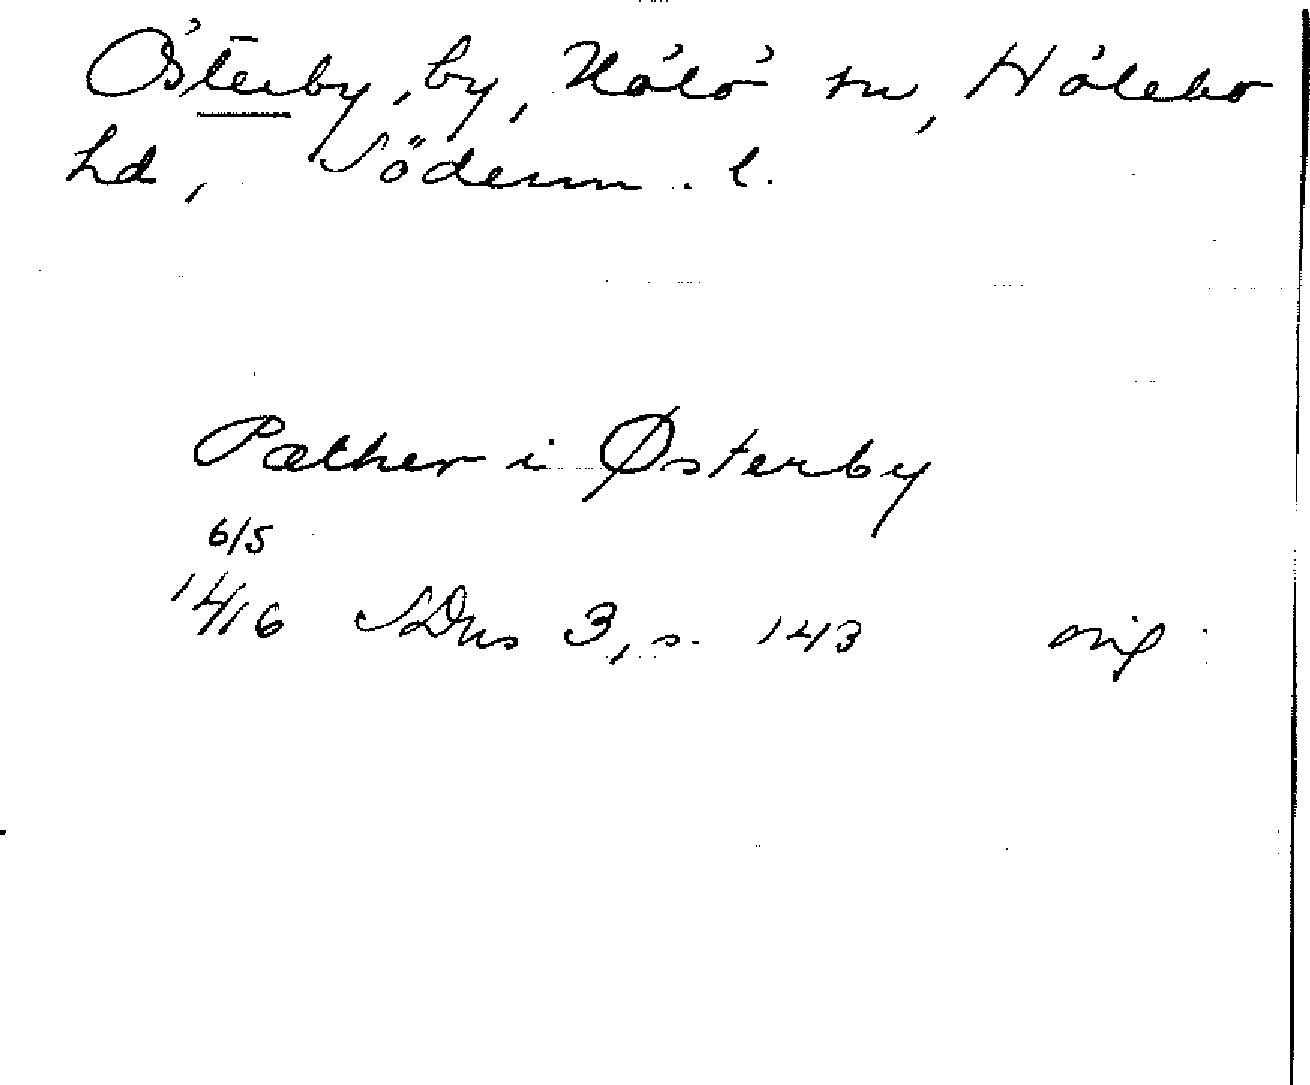 Österby, by, Hölö sn, Hölebo
hd, Söderm. l.
Pæther i Østerby
6/5
1416 SDns 3, s. 143 orig.